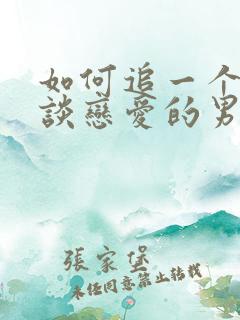 如何追一个
談戀愛的男
張家堡
未经同意禁止转载